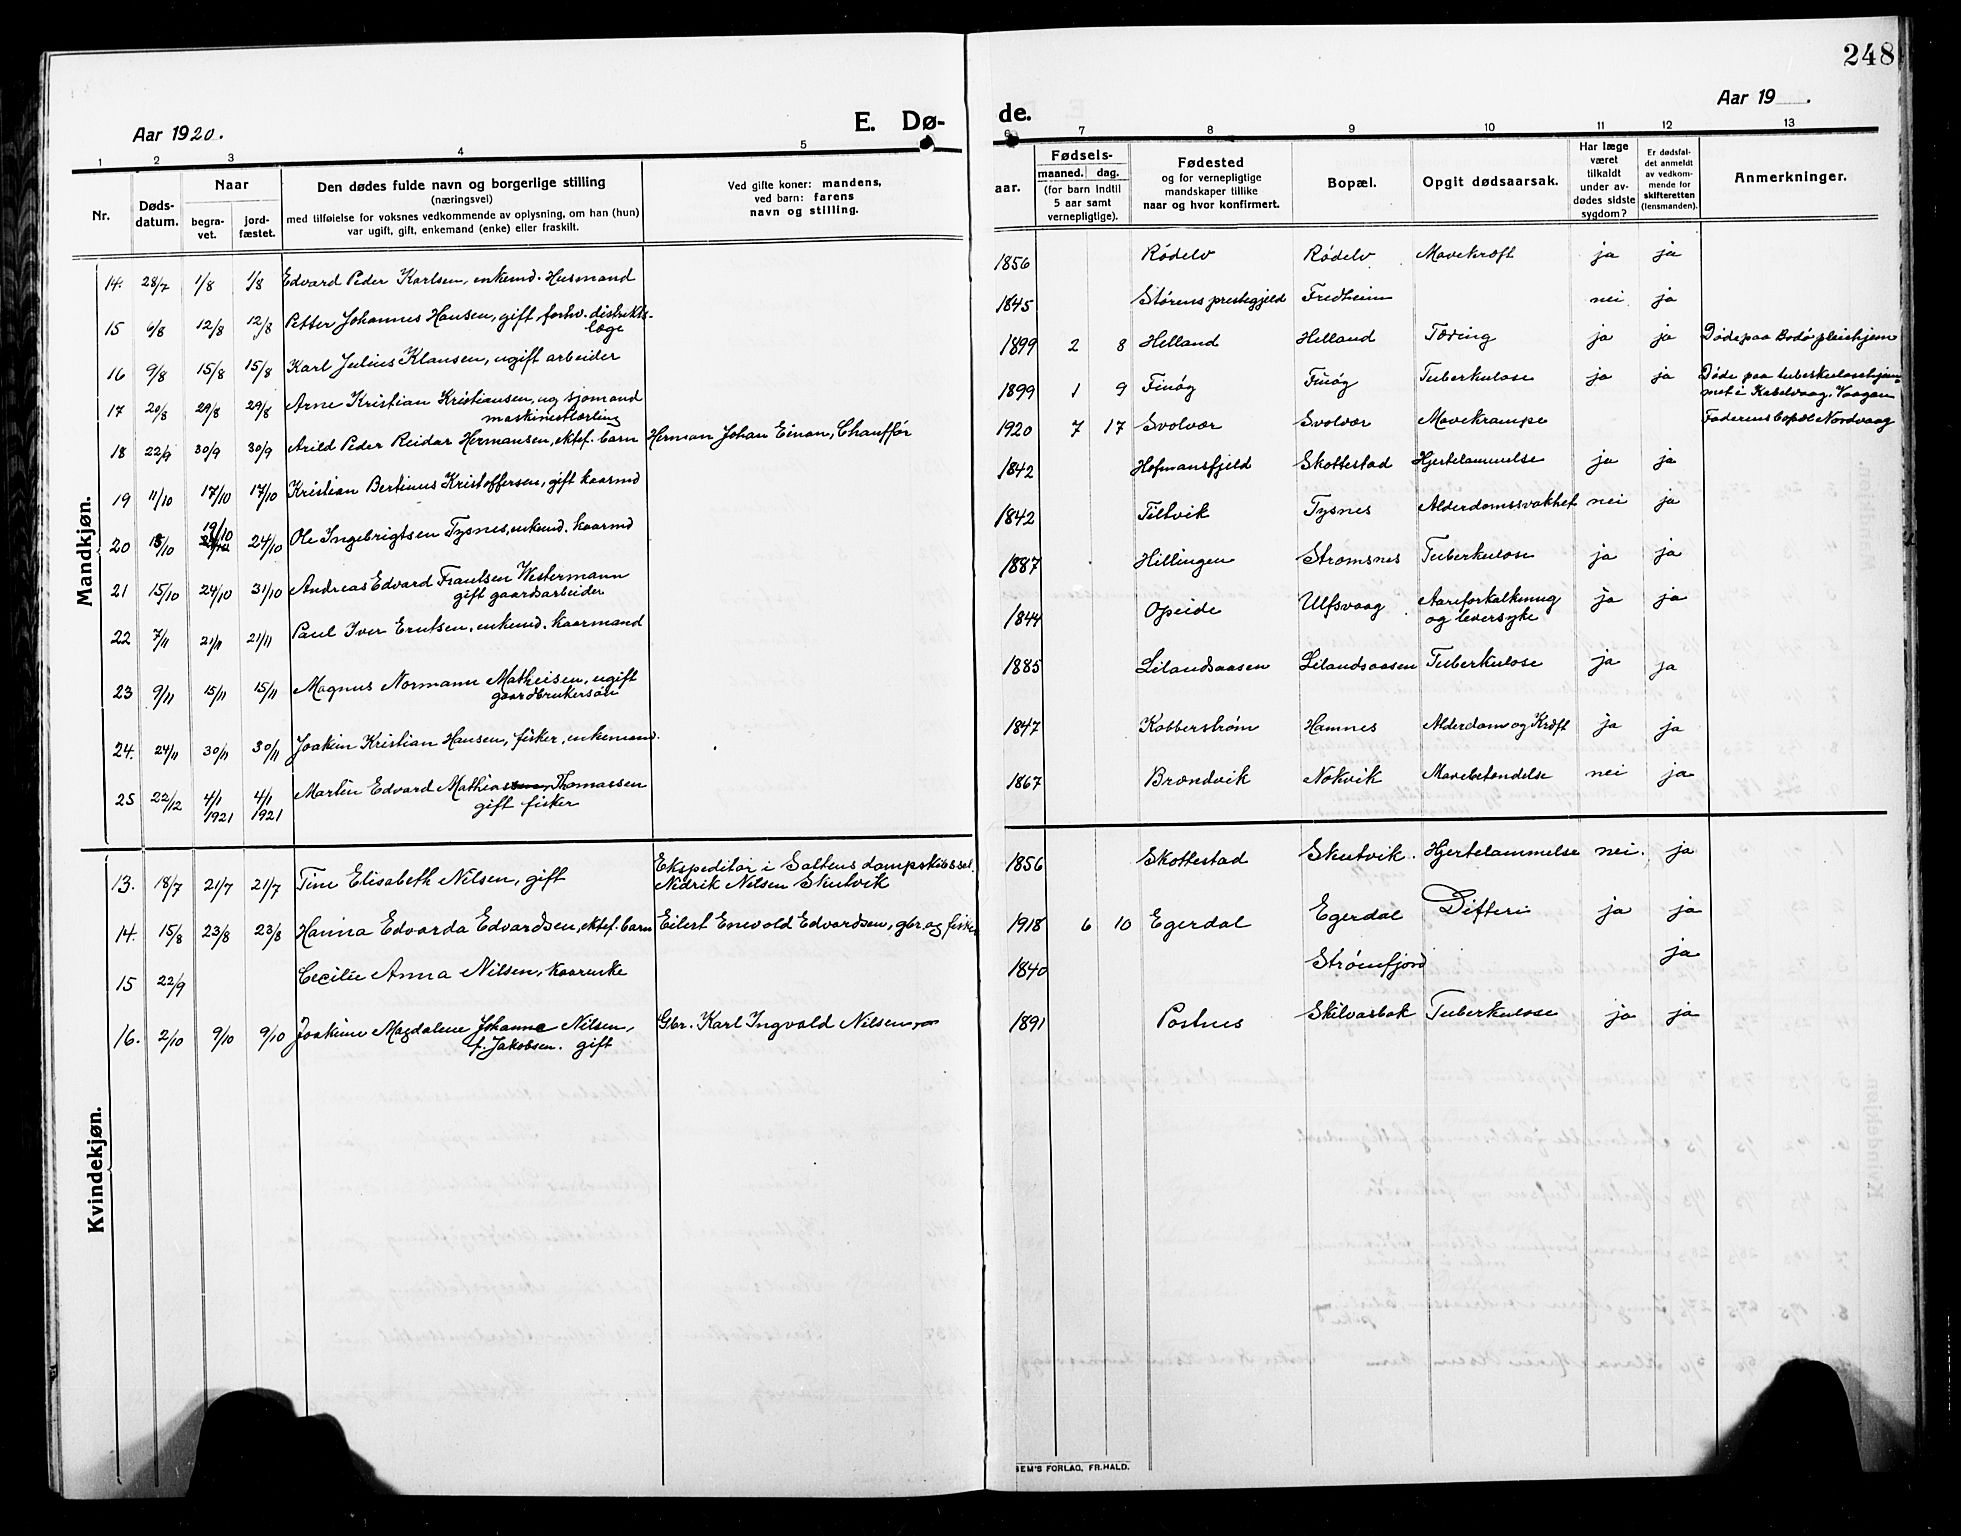 248
Aar 1920.
E. Dø-
de.
Aar 19 .
1 2 3 4 5 6 7 8 9 10 11 12 13
Nr.
Døds-
datum.
Naar
begra-
vet.
jord-
fæstet.
Den dødes fulde navn og borgerlige stilling
(næringsvei)
med tilføielse for voksnes vedkommende av oplysning, om han (hun)
var ugift, gift, enkemand (enke) eller fraskilt.
Ved gifte koner: mandens,
ved barn: farens
navn og stilling.
aar.
Fødsels-
maaned. dag.
(for barn indtil
5 aar samt
vernepligtige).
Fødested
og for vernepligtige
mandskaper tillike
naar og hvor konfirmert.
Bopæl.
Opgit dødsaarsak.
Har læge
været
tilkaldt
under av-
dødes sidste
sygdom?
Er dødsfal-
det anmeldt
av vedkom-
mende for
skifteretten
(lensmanden).
Anmerkninger.
Mandkjøn.
14. 28/7 1/8 1/8 Edvard Peder Karlsen, enkemd. Husmand 1856 Rødelv Rødelv Mavekræft ja ja
15 6/8 12/8 12/8 Petter Johannes Hansen, gift, forhv. distrikts-
læge 1845 Størens prestegjeld Fredheim nei ja
16 9/8 15/8 15/8 Karl Julius Klausen, ugift arbeider 1899 2 8 Helland Helland Tæring ja ja Døde paa Bodø pleiehjem
17 20/8 29/8 29/8 Arne Kristian Kristiansen, ug sjømand
maskinistlærling 1899 1 9 Finøg Finøg Tuberkulose ja ja Døde paa tuberkulosehjem-
met i Kabelvaag, Vaagan
18 22/9 30/9 30/9 Arild Peder Reidar Hermansen, ektef. barn Herman Johan Einan, Chauffør 1920 7 17 Svolvær Svolvær Mavekrampe Faderens bopæl Nordvaag
19 11/10 17/10 17/10 Kristian Bertinus Kristoffersen, gift kaarmd 1842 Hofmansfjeld Skottestad Hjertelammelse ja ja
20 13/10 19/10 24/10 Ole Ingebrigtsen Tysnes, enkemd. kaarmd 1842 Tiltvik Tysnes Alderdomssvakhet nei ja
21 15/10 24/10 31/10 Andreas Edvard Frantsen Westermann
gift gaardsarbeider 1887 Hillingen Strømsnes Tuberkulose ja ja
22 7/11 21/11 21/11 Paul Iver Erntsen, enkemd. kaarmand 1844 Opeide Ulfsvaag Aareforkalkning
og leversyke ja ja
23 9/11 15/11 15/11 Magnus Normann Matheisen, ugift
gaardbrukersøn 1885 Lilandsaasen Lilandsaasen Tuberkulose ja ja
24. 24/11 30/11 30/11 Joakim Kristian Hansen, fisker, enkemand. 1847 Kobberstrøm Hamnes Alderdom og Kræft ja ja
25 22/12 4/1 1921 4/1 1921 Martin Edvard Mathias Thomassen
gift fisker 1867 Brændvik Nokvik Mavebetændelse nei ja
Kvindekjøn.
13. 18/7 21/7 21/7 Tine Elisabeth Nilsen, gift Ekspeditør i Saltens dampskibssel.
Nidrik Nilsen Skutvik 1856 Skottestad Skutvik. Hjertelammelse nei. ja
14. 15/8 23/8 23/8 Hanna Edvarda Edvardsen, ektef. barn Eilert Enevold Edvardsen, gbr. og fisker 1918 6 10 Egerdal Egerdal Difteri ja ja
15 22/9 Cecilie Anna Nilsen, kaarenke 1840 Strømfjord ja
16. 2/10 9/10 9/10 Joakime Magdalene Johanne Nilsen,
f. Jakobsen. gift Gbr. Karl Ingvald Nilsen 1891 Postnes Skilvasbak Tuberkulose ja ja
SEM'S FORLAG, FR.HALD.